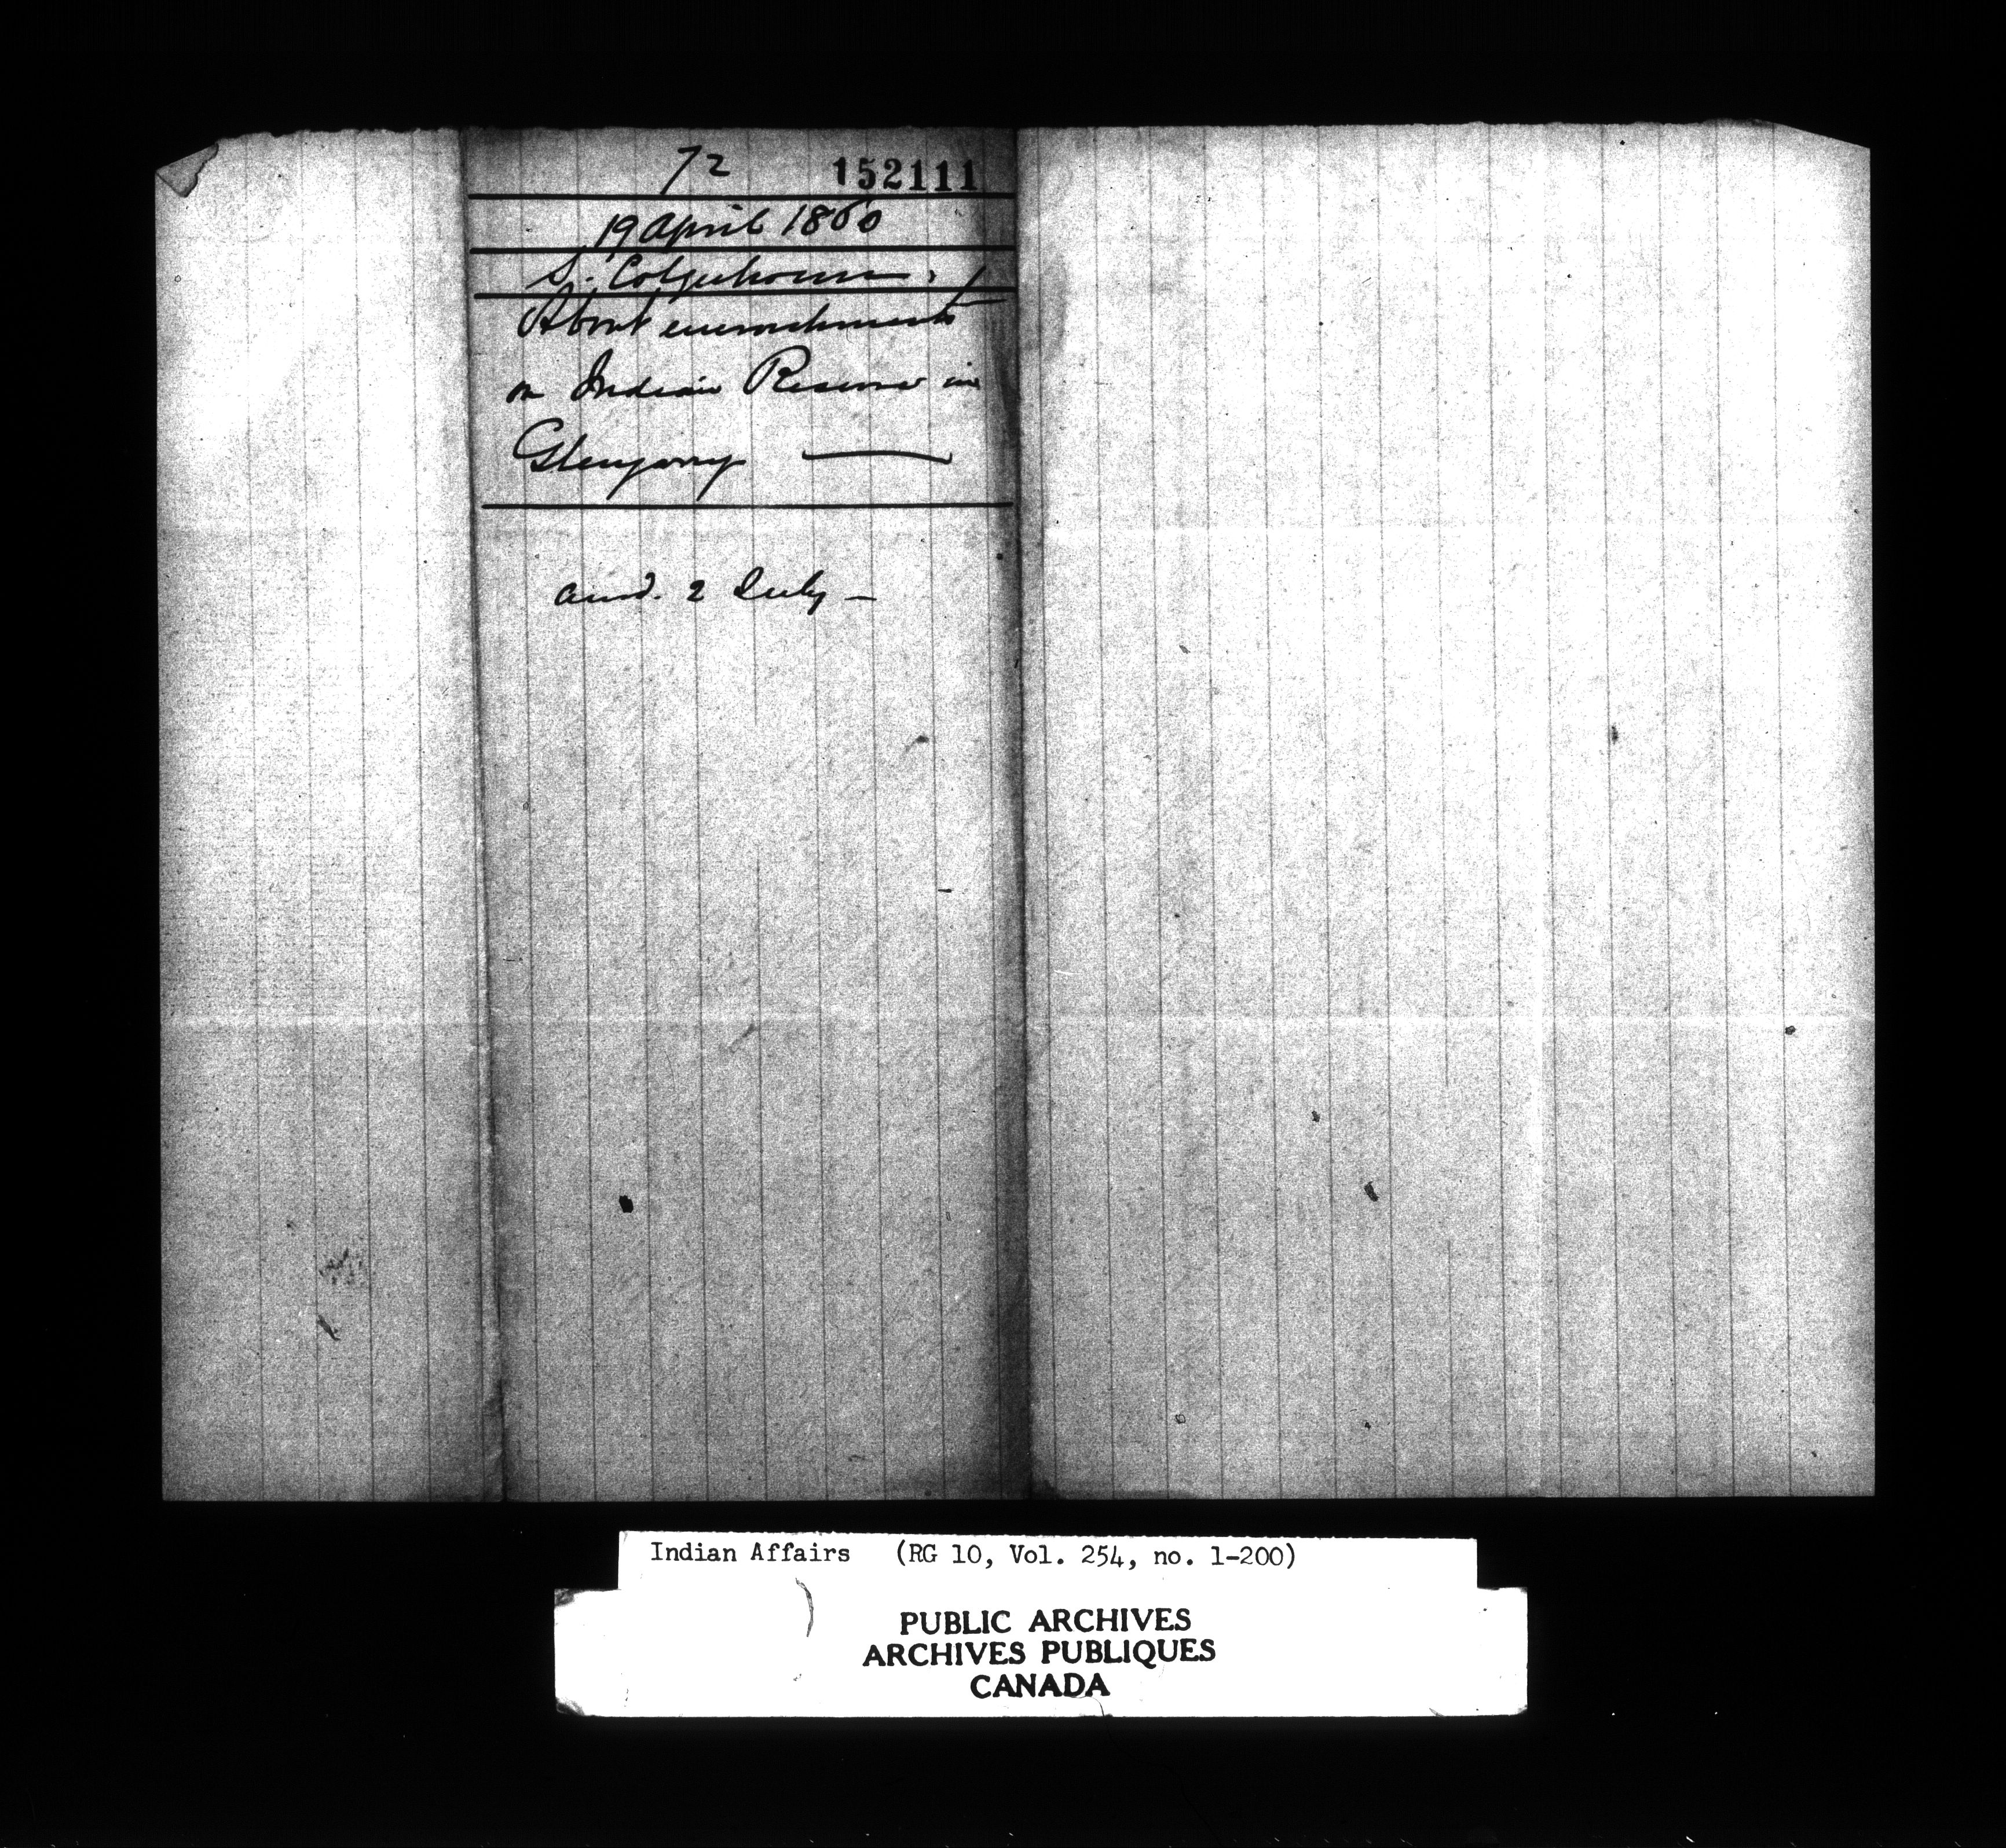 72 152111
19 April 1860
S. Colquhoun
About encroachments
on Indian Reserve in
Glengarry
ansd. 2 July -
Indian Affairs (RG 10, Vol. 254, no. 1-200)
PUBLIC ARCHIVES
ARCHIVES PUBLIQUES
CANADA